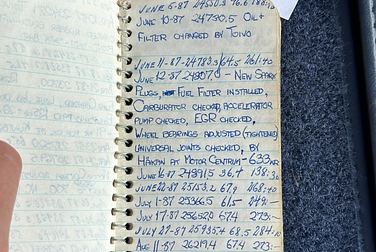 JUNE 5-87 24550.3 46.6 188:
JUNE 10-87 24730.5 OIL+
FILTER CHANGED BY TOIVO
JUNE 11-87-24783.5 64.5 261:40
JUNE 12-87 24907.0 - NEW SPARK
PLUGS, FUEL FILTER INSTALLED,
CARBURATOR CHECKED, ACCELERATOR
PUMP CHECKED, EGR CHECKED,
WHEEL BEARINGS ADJUSTED (TIGHTENED)
UNIVERSAL JOINTS CHECKED, BY
HÅKAN AT MOTOR CENTRUM - 633 KR
JUNE 16-87 24891.5 36,7 138:
JUNE 22-87 25153.2 67,9 268:40
JULY 1-87 25366,5 61,5 249:-
JULY 17-87 25652,0 67.4 273:-
JULY 27-87 25935.4 68,5 284:
AUG 11-87 26219.4 67.4 273:-